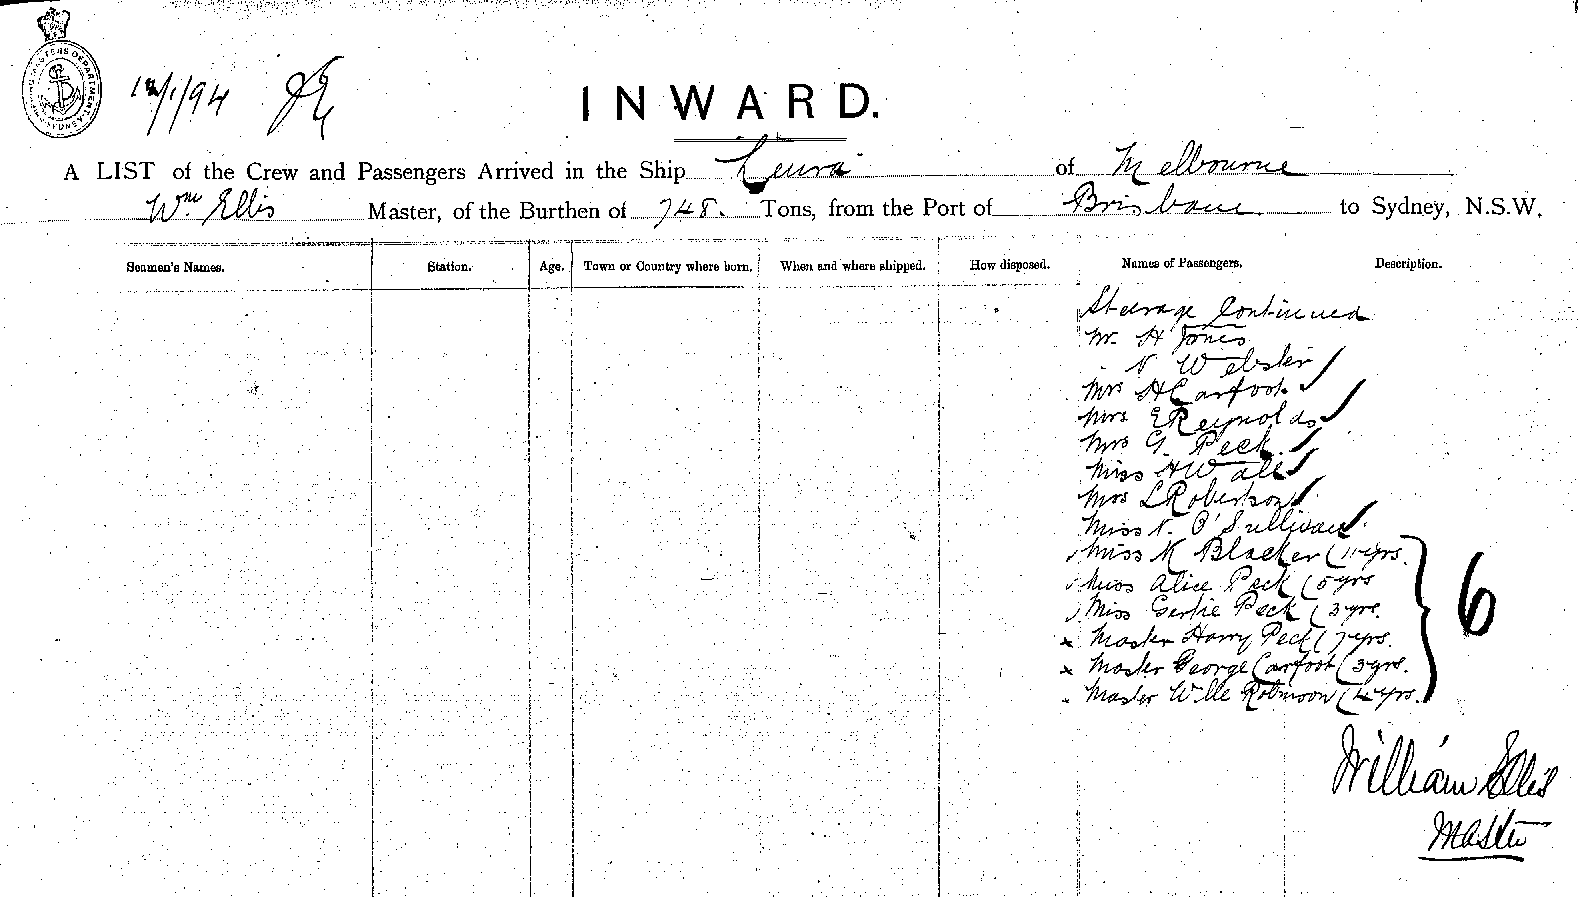 SHIPPING MASTERS DEPARTMENT SYDNEY
12/1/94
INWARD.
A LIST of the Crew and Passengers Arrived in the Ship Leura of Melbourne
Wm Ellis Master, of the Burthen of 748. Tons, from the Port of Brisbane to Sydney, N.S.W.
Seamen's Names. Station. Age. Town or Country where born. When and where shipped. How disposed. Names of Passengers. Description.
Steerage Continued
Mr. H Jones
" N Webster
Mrs H Carfoot
Mrs E Reynolds
Mrs G. Peck
Miss H Wall
Mrs L Robertson
Miss N. O'Sullivan
Miss K Blacker (11 yrs.
Miss Alice Peck (5 yrs
Miss Gertie Peck (3 yrs.
Master Harry Peck (7 yrs.
Master George Carfoot (3 yrs.
Master Wille Robinson (4 yrs.
6
William Ellis
Master